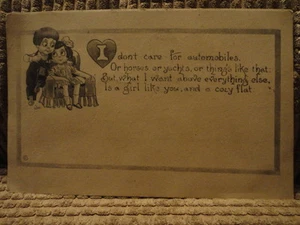 I dont care for automobiles,
Or horses or yachts, or things like that;
But what I want above everything else,
Is a girl like you, and a cosy flat.